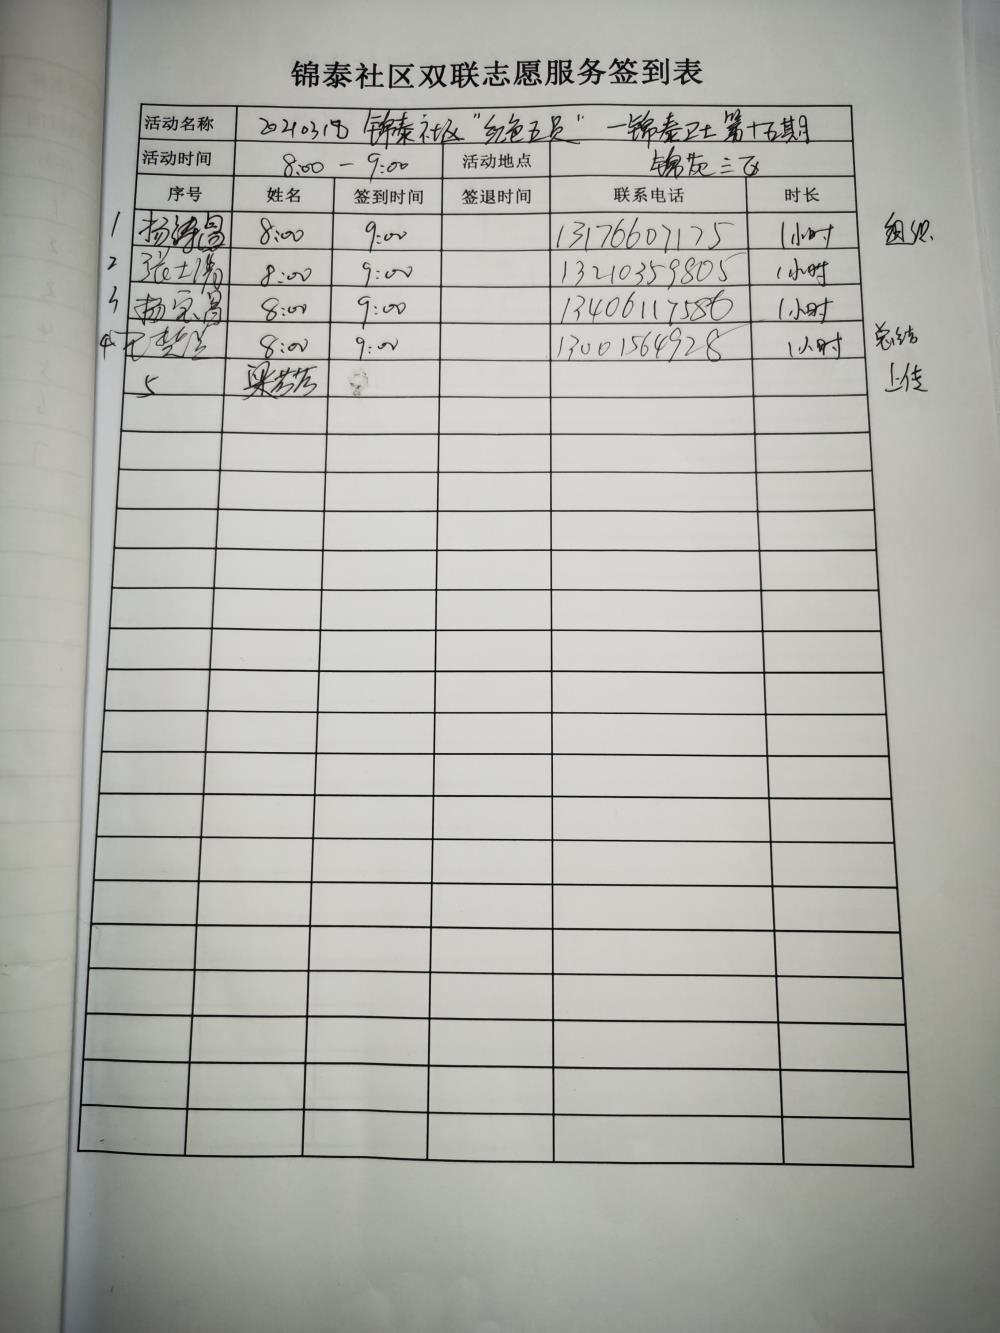 锦泰社区双联志愿服务签到表
活动名称 20210318 锦泰社区“红色五员”—锦泰卫士第十五期
活动时间 8:00 — 9:00 活动地点 锦苑三区
序号 姓名 签到时间 签退时间 联系电话 时长
1 杨涛昌 8:00 9:00 13176607175 1小时 组织.
2 张士 8:00 9:00 13210359805 1小时
3 杨宗昌 8:00 9:00 13406117586 1小时
4 8:00 9:00 13001564928 1小时 总结
5 梁芳芳 上传